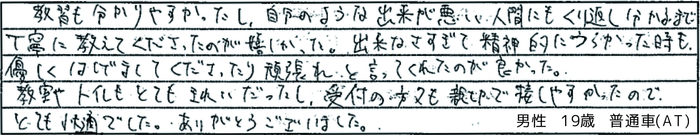 教習も分かりやすかったし、自分のような出来が悪い人間にもくり返し分かるまで
丁寧に教えてくださったのが嬉しかった。出来なさすぎて精神的につらかった時も、
優しくはげましてくださったり頑張れと言ってくれたのが良かった。
教室やトイレもとてもきれいだったし、受付の方々も親切で接しやすかったので
とても快適でした。ありがとうございました。
男性 19歳 普通車(AT)